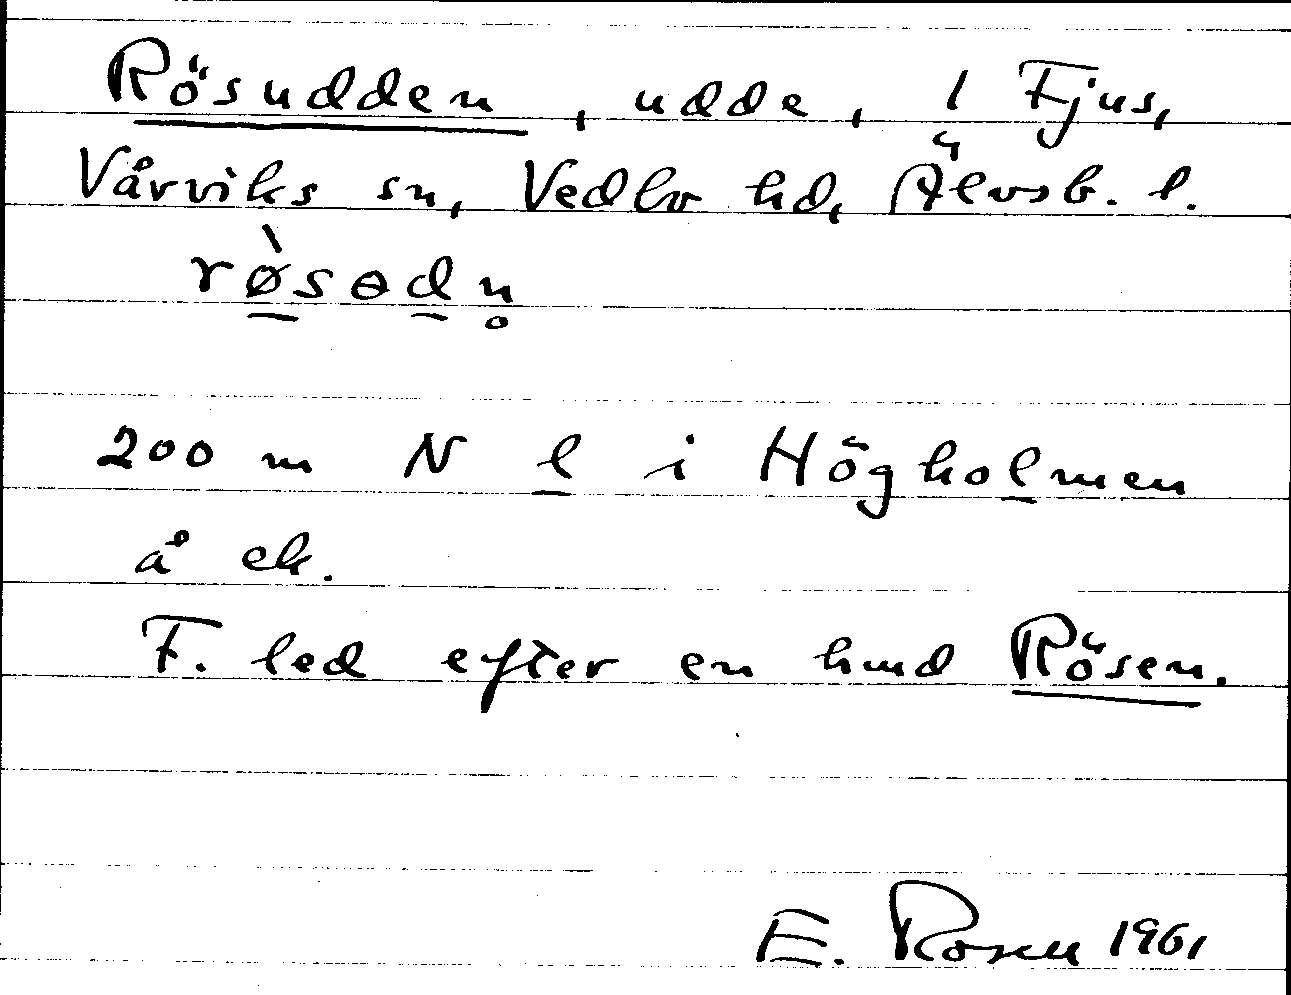 Rösudden, udde, 1 Fjus,
Vårviks sn, Vedbo hd, Älvsb. l.
rø̀sɵdn̥
200 m N l i Högholmen
å ek.
F. led efter en hund Rösen.
E. Rosen 1961